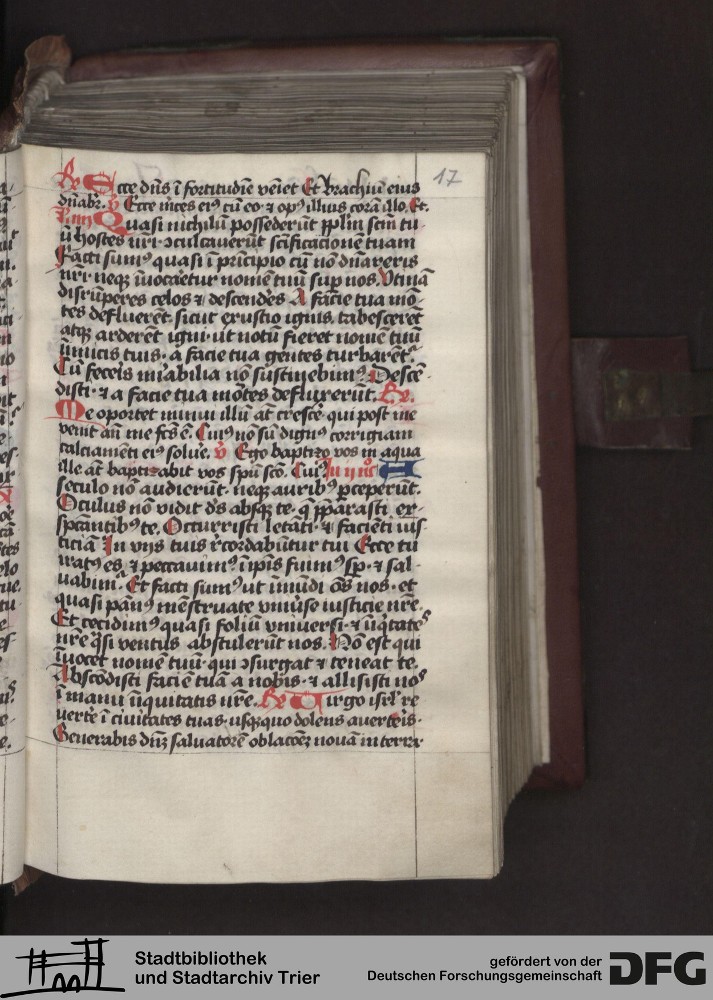 17
Rꝫ Ecce dn̄s ī fortitudīe vēiet Et brachiū eius
dn̄abr̄. v̄ Ecce m̄ces eiꝰ cū eo · ⁊ opꝰ illius corā illo. Et.
Quasi nichilū possederūt pplm̄ scm̄ tu-
ū hostes nr̄i · ↄculcauerūt scīficacionē tuam
Facti sumꝰ quasi ī prīcipio cū nō dn̄areris
nr̄i · neqꝫ īuocaretur nomē tuū sup nos. Vtinā
disrūperes celos ⁊ descendēs A facie tua mō-
tes defluerēt · sicut exustio ignis · tabescerēt
atqꝫ arderēt igni · ut notū fieret nomē tuū
īimicis tuis · a facie tua gentes turbarēt̄.
Cū fecēis m̄abilia nō sustinebimꝰ. Descē-
disti · ⁊ a facie tua mōtes defluxerūt. Rꝫ.
Me oportet minui illū at̄ crescē · qui post me
venit an̄ me fcs̄ ē. Cuiꝰ nō sū dignꝰ corrigiam
calciamēti eiꝰ soluē. v̄ Ego baptizo vos in aqua
ille at̄ baptizabit vos spū scō. Cuiꝰ A
seculo nō audierūt · neqꝫ auribꝰ pceperūt.
Oculus nō vidit dꝰs absqꝫ te · q ppārasti ex-
spcāntibꝰ te. Occurristi letāti · ⁊ faciēti ius
ticiā In viis tuis rc̄ordabūtur tui Ecce tu
iratꝰ es · ⁊ peccauimꝰ · īipīs fuimꝰ sp̄ · ⁊ sal-
uabimr̄. Et facti sumꝰ ut īmūdi oēs nos · et
quasi pānꝰ mēstruate vniūse iusticie nr̄e.
Et cecidimꝰ quasi foliū vniuersi · ⁊ īiqtateˢ
nr̄e qsi ventus abstulerūt nos. Nō est qui
īuocet nomē tuū · qui ↄsurgat ⁊ teneat te.
Abscōdisti faciē tuā a nobis · ⁊ allisisti noˢ
ī manu īiquitatis nr̄e. Rꝫ Virgo isrl̄ re
uerte ī ciuitates tuas · usqꝫquo dolens auertēis ·
Generabis dn̄ꝫ saluatorē oblacōeꝫ nouā in terra ·
Stadtbibliothek
und Stadtarchiv Trier
gefördert von der
Deutschen Forschungsgemeinschaft
DFG